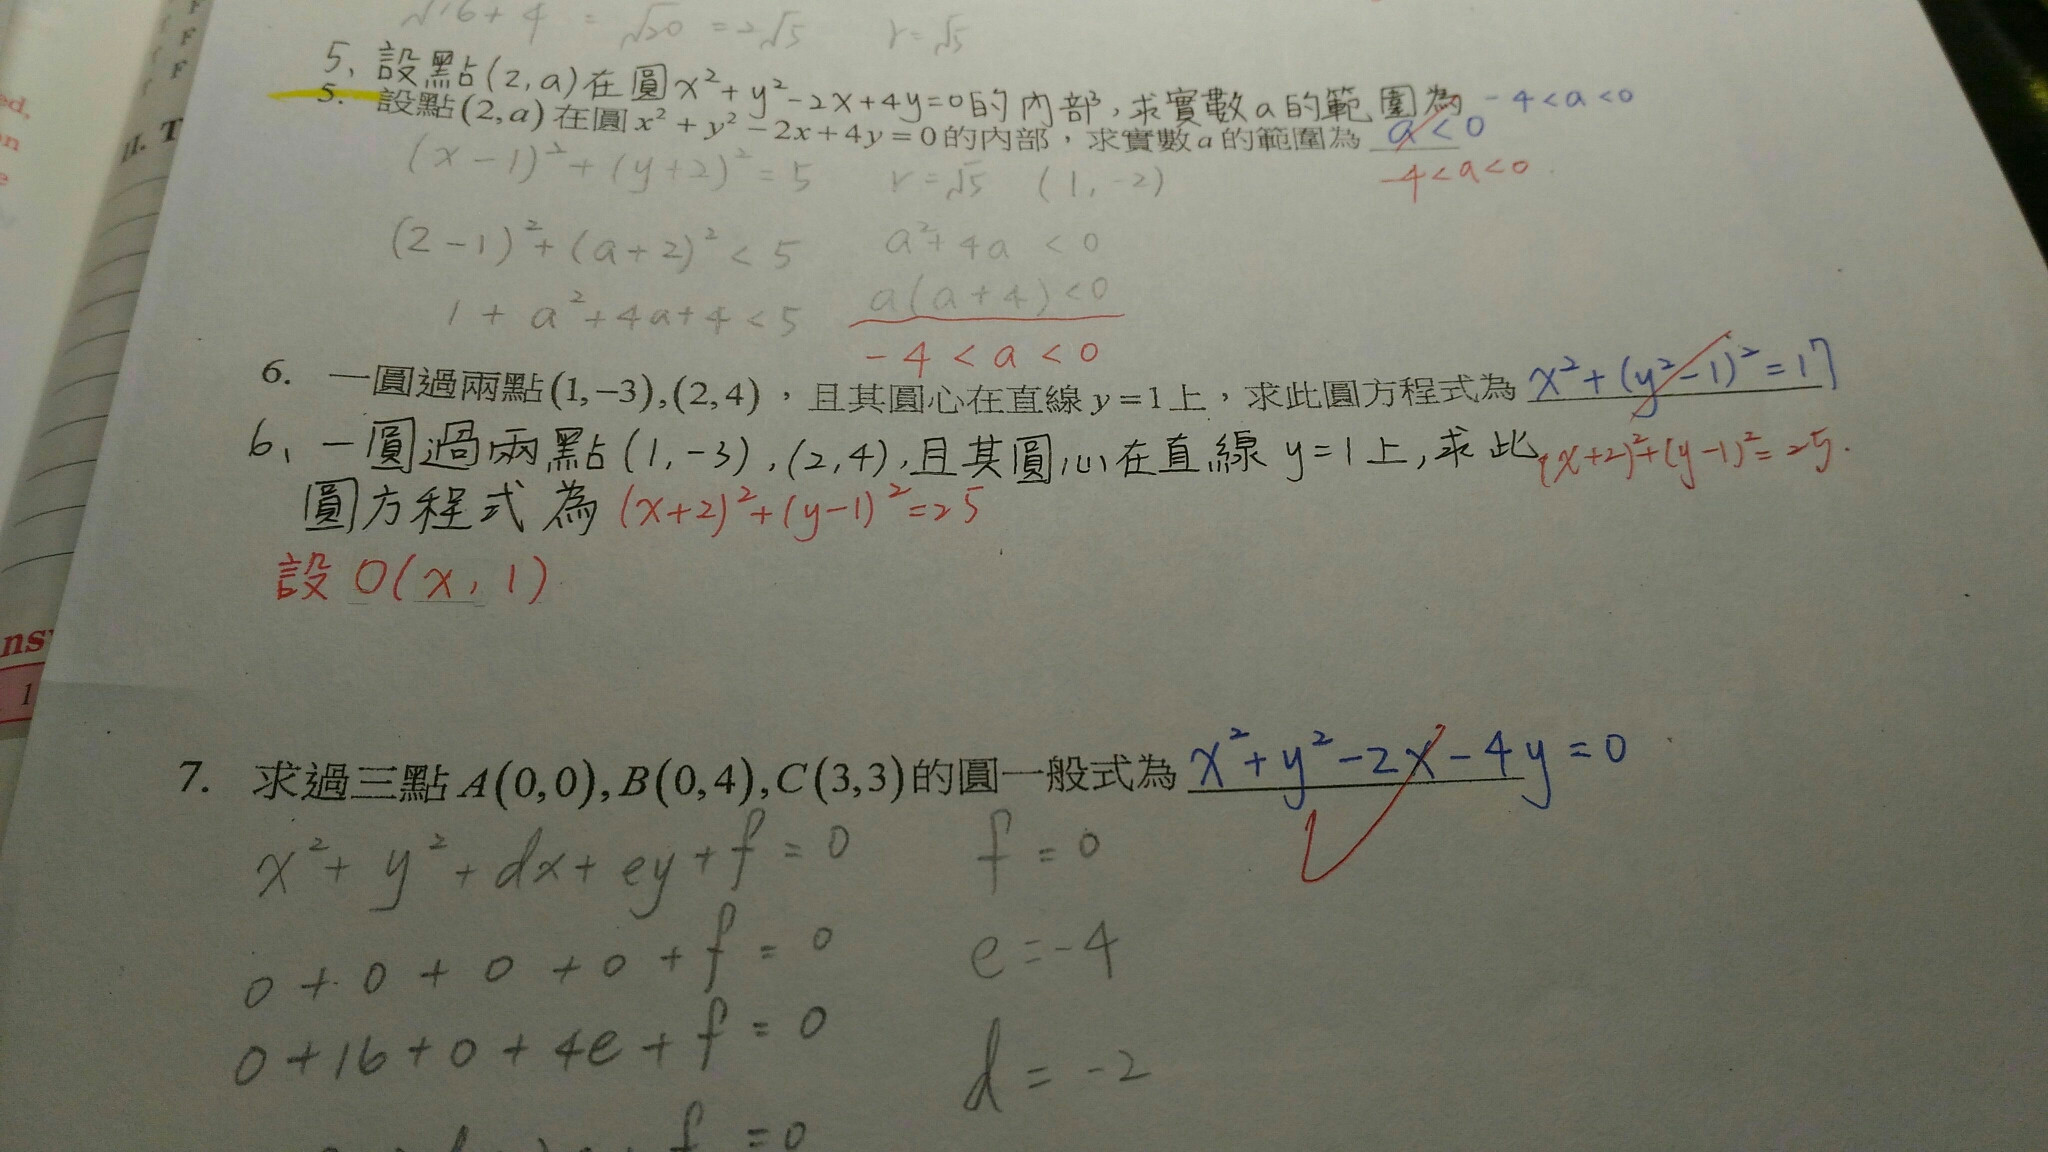 √16+4 = √20 = 2√5 r=√5
5. 設點(2,a)在圓x²+y²-2x+4y=0的內部,求實數a的範圍為 -4<a<0
5. 設點(2,a)在圓x²+y²-2x+4y=0的內部,求實數a的範圍為 a<0
-4<a<0
(x-1)²+(y+2)²=5 r=√5 (1,-2)
(2-1)²+(a+2)²<5 a²+4a<0
1+a²+4a+4<5 a(a+4)<0
-4<a<0
6. 一圓過兩點(1,-3),(2,4),且其圓心在直線y=1上,求此圓方程式為 x²+(y²-1)²=17
6、一圓過兩點(1,-3),(2,4),且其圓心在直線y=1上,求此 (x+2)²+(y-1)²=25.
圓方程式為(x+2)²+(y-1)²=25
設O(x,1)
7. 求過三點A(0,0),B(0,4),C(3,3)的圓一般式為 x²+y²-2x-4y=0
x²+y²+dx+ey+f=0 f=0
0+0+0+0+f=0 e=-4
0+16+0+4e+f=0 d=-2
f=0
II. T
F
F
ed,
on
1